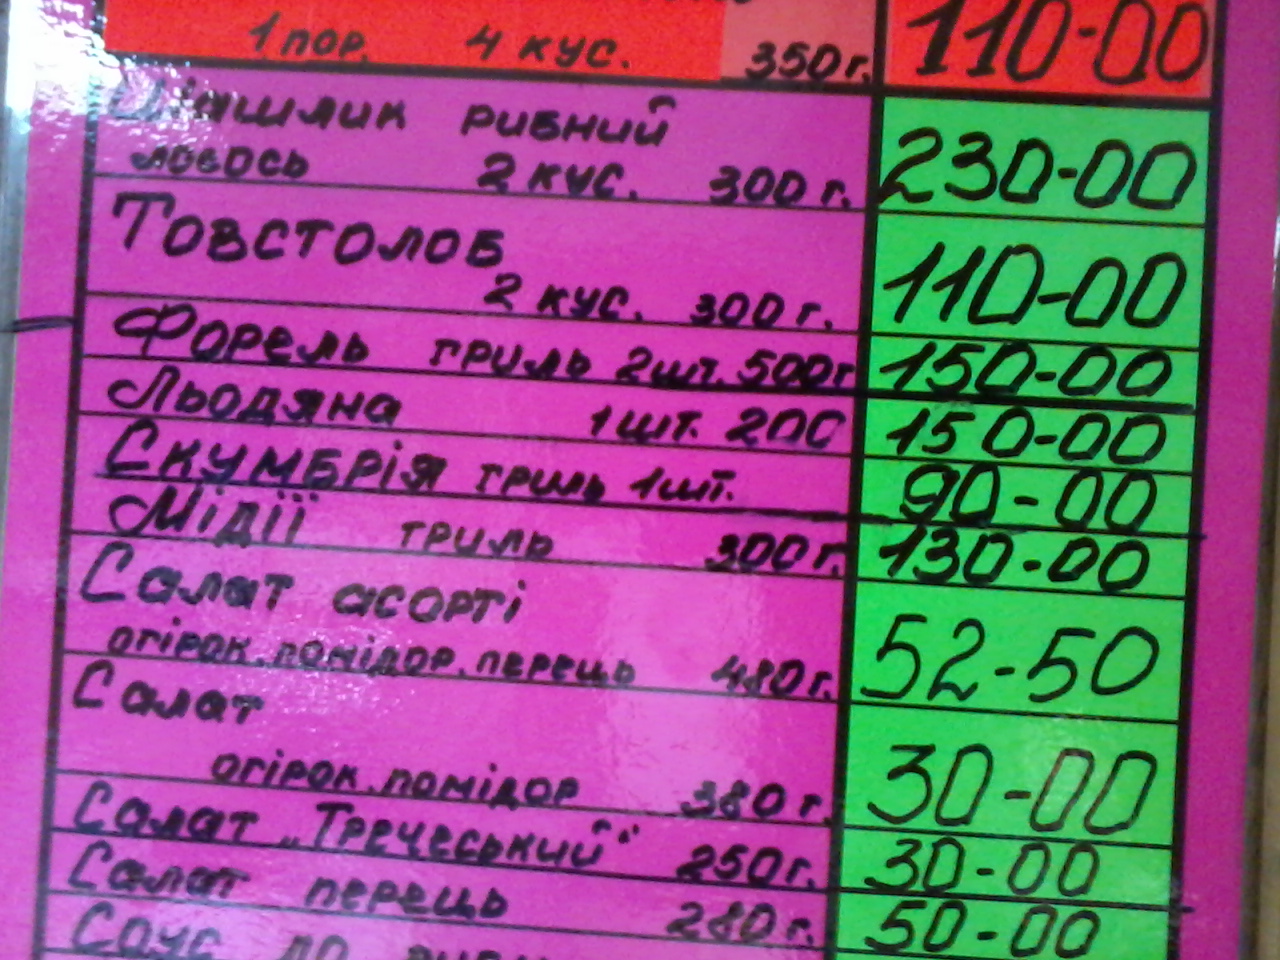 1 пор. 4 кус. 350 г. 110-00
Шашлик рибний
лосось 2 кус. 300 г. 230-00
Товстолоб
2 кус. 300 г. 110-00
Форель гриль 2 шт. 500г 150-00
Льодяна 1 шт. 200 150-00
Скумбрія гриль 1 шт. 90-00
Мідії гриль 300 г. 130-00
Салат асорті
огірок, помідор, перець 480 г. 52-50
Салат
огірок, помідор 380 г. 30-00
Салат „Гречеський" 250 г. 30-00
Салат перець 280 г. 50-00
Соус до